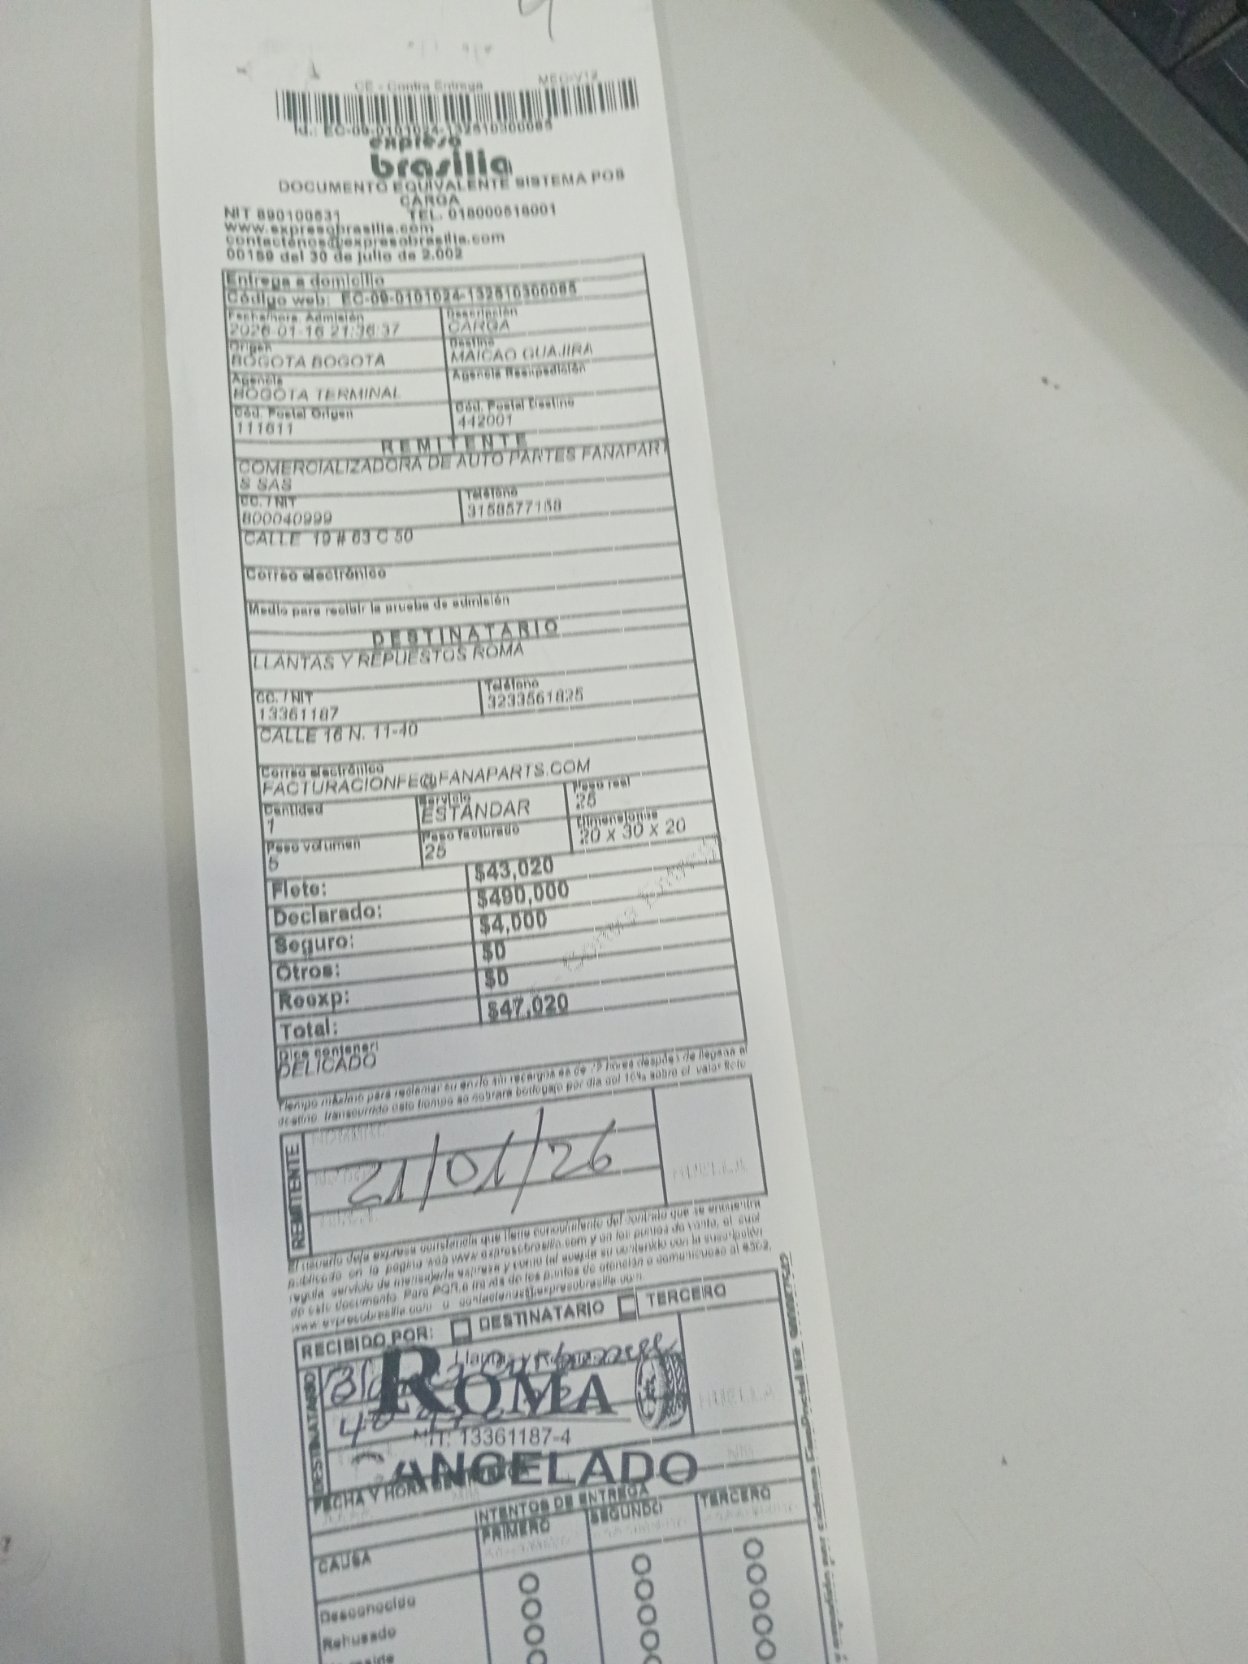 CE - Contra Entrega MEC-V12
Id.: EC-09-0101024-132510300085
expreso
brasilia
DOCUMENTO EQUIVALENTE SISTEMA POS
CARGA
NIT 890100531 TEL. 018000518001
www.expresobrasilia.com
contactenos@expresobrasilia.com
00169 del 30 de julio de 2.002
Entrega a domicilio
Código web: EC-09-0101024-132510300085
Fecha/hora. Admisión Descripción
2026-01-16 21:36:37 CARGA
Origen Destino
BOGOTA BOGOTA MAICAO GUAJIRA
Agencia Agencia Reexpedición
BOGOTA TERMINAL
Cód. Postal Origen Cód. Postal Destino
111611 442001
REMITENTE
COMERCIALIZADORA DE AUTO PARTES FANAPART
S SAS
CC. / NIT Teléfono
800040999 3158577158
CALLE 19 # 63 C 50
Correo electrónico
Medio para recibir la prueba de admisión
DESTINATARIO
LLANTAS Y REPUESTOS ROMA
CC. / NIT Teléfono
13361187 3233561825
CALLE 16 N. 11-40
Correo electrónico
FACTURACIONFE@FANAPARTS.COM
Cantidad Servicio Peso real
1 ESTANDAR 25
Peso volumen Peso facturado Dimensiones
5 25 20 x 30 x 20
Flete: $43,020
Declarado: $490,000
Seguro: $4,000
Otros: $0
Reexp: $0
Total: $47,020
Dice contener:
DELICADO
Tiempo máximo para reclamar su envío sin recargos es de 72 horas después de llegada al
destino, transcurrido este tiempo se cobrara bodegaje por día del 10% sobre el valor flete
REMITENTE
21/01/26
HUELLA
El usuario deja expresa constancia que tiene conocimiento del contrato que se encuentra
publicado en la pagina web www.expresobrasilia.com y en los puntos de venta, el cual
regula servicio de mensajería expresa y como tal acepta su contenido con la suscripción
de este documento. Para PQR a través de los puntos de atención o comunicarse al
www.expresobrasilia.com o contactenos@expresobrasilia.com
RECIBIDO POR: DESTINATARIO TERCERO
DESTINATARIO
ROMA
HUELLA
NIT: 13361187-4
CANCELADO
FECHA Y HORA
INTENTOS DE ENTREGA
CAUSA PRIMERO SEGUNDO TERCERO
Desconocido
Rehusado